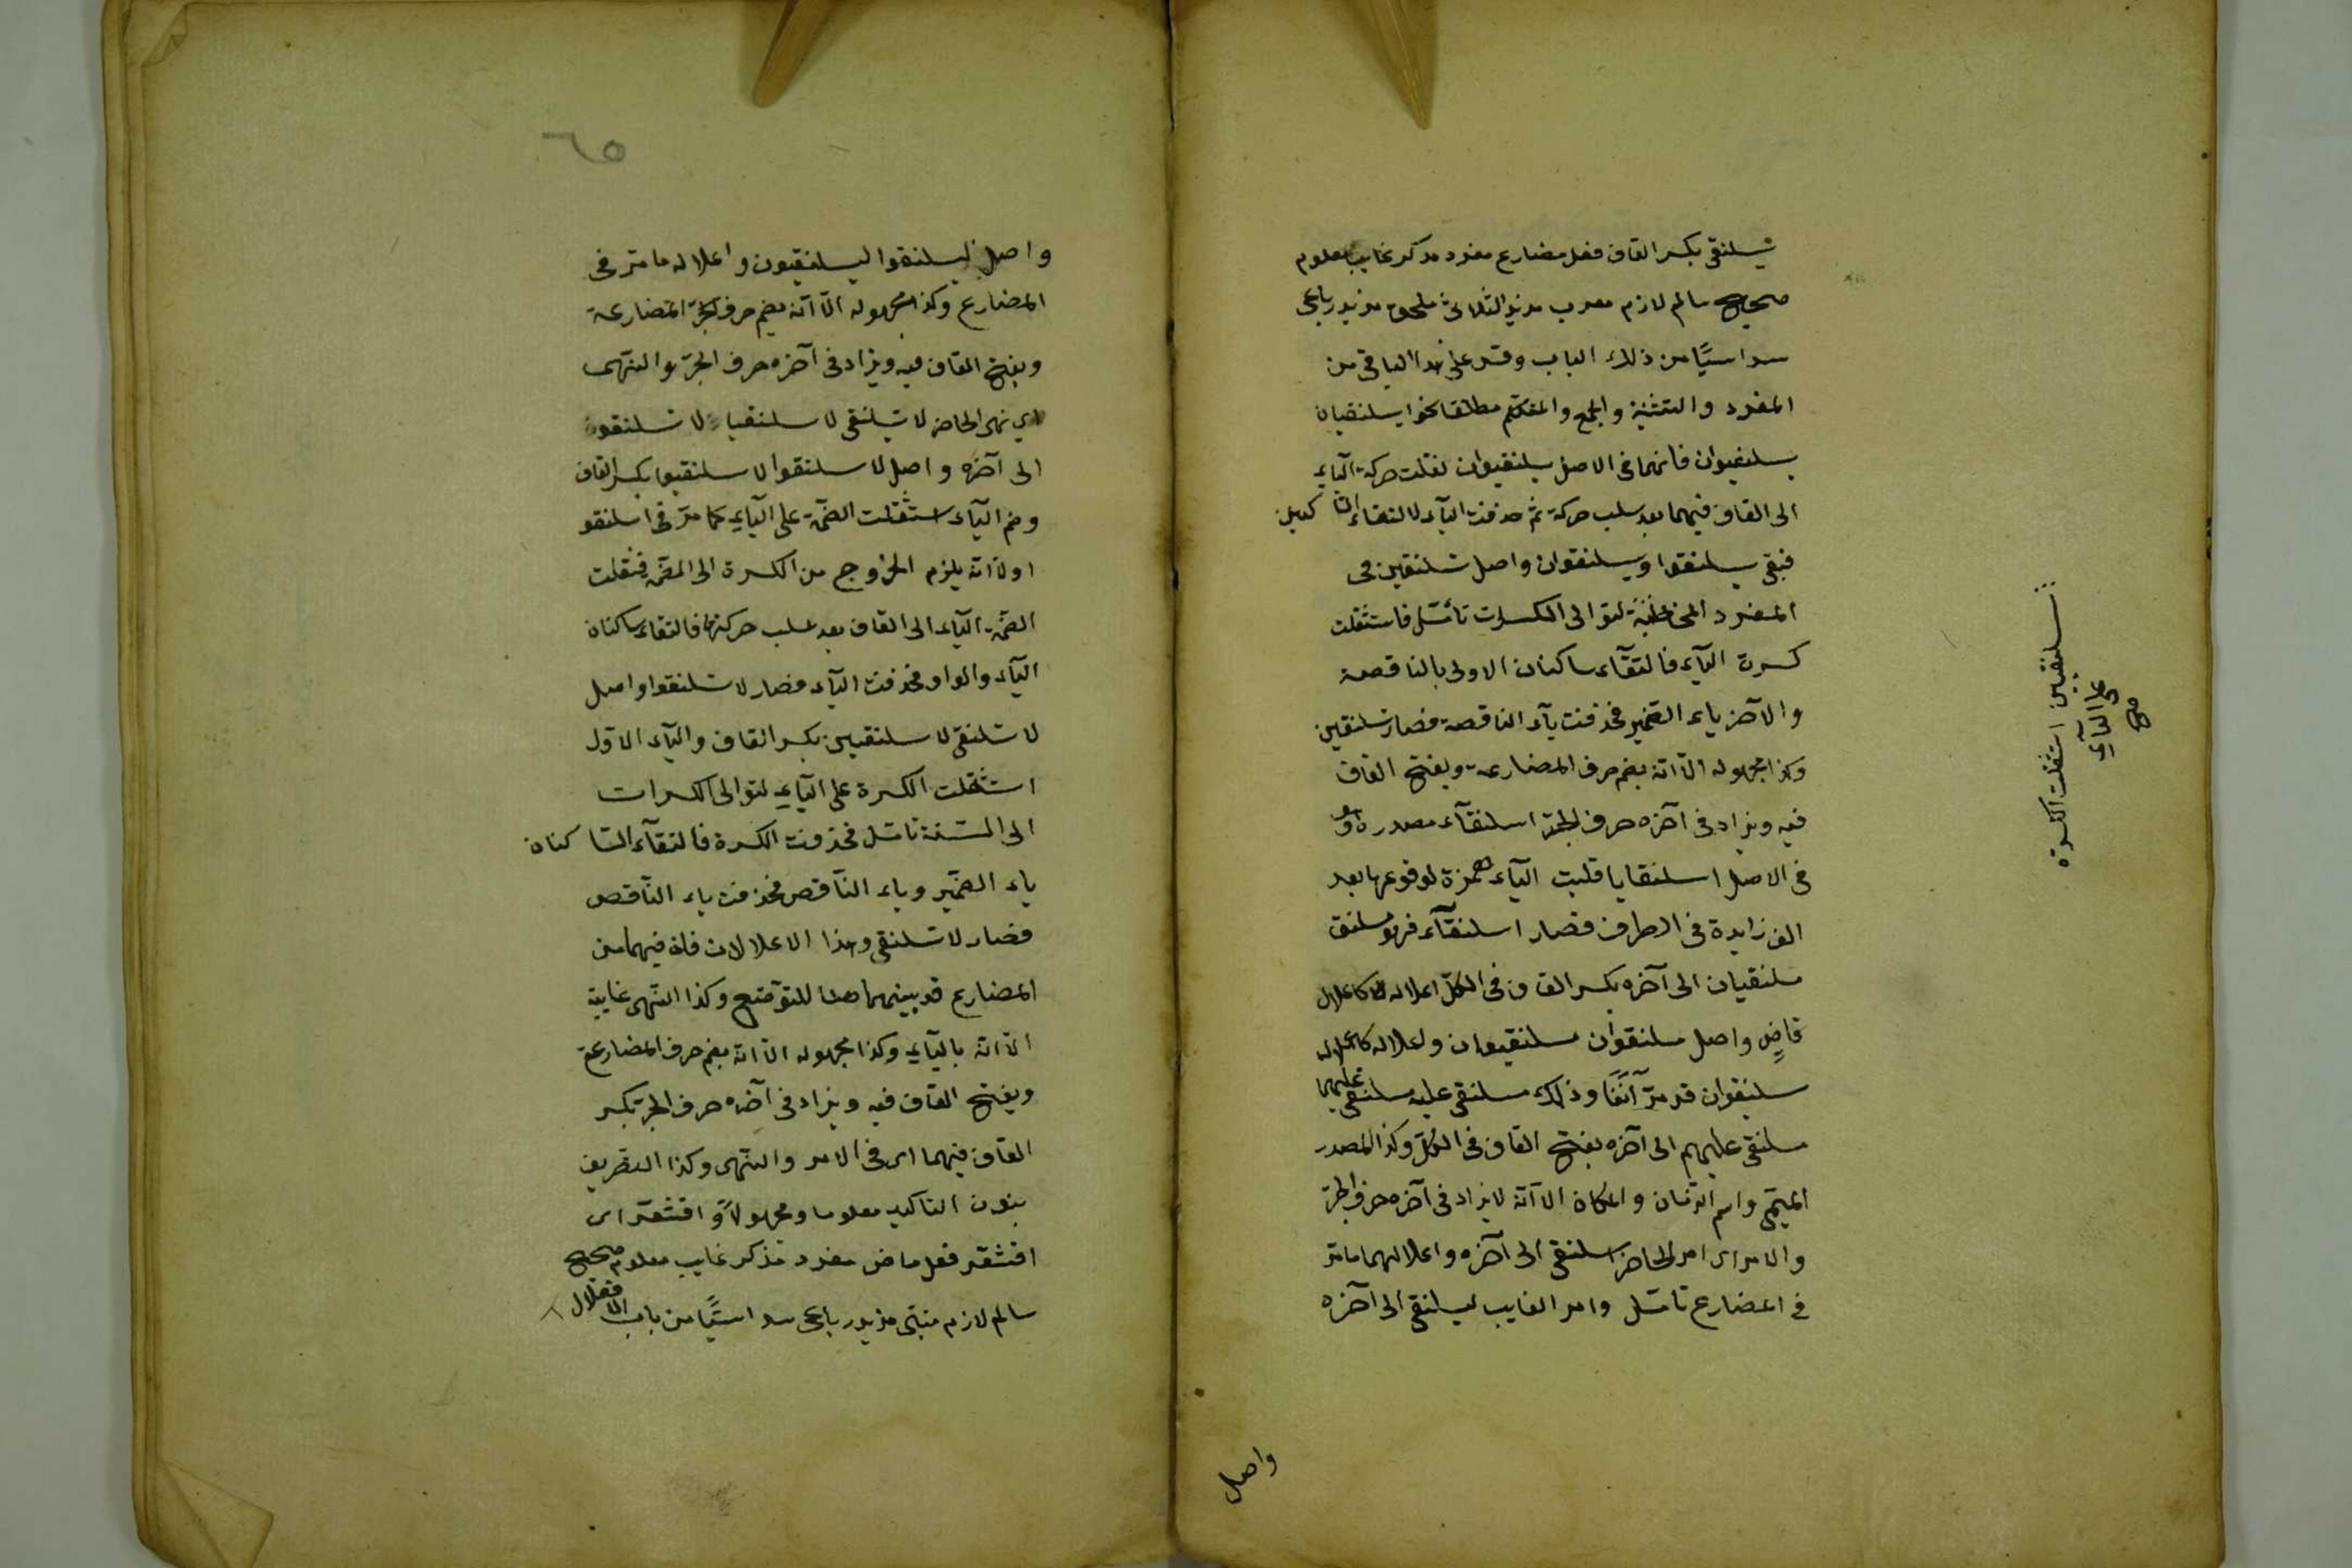 يسلنقى بكسر القاف فعل مضارع مفرد مذكر غايب معلوم
صحيح سالم لازم معرب مزيد الثلاثى ملحق مزيد رباعى
سداسيًا من ذلك الباب وقس على هذا الباقى من
المفرد والتثنية والجمع والمتكلم مطلقا نحو يسلنقيان
يسلنقوان فانهما فى الاصل يسلنقيوان نقلت حركة اليآء
الى القاف فيهما بعد سلب حركة ثم حذفت اليآء لالتقاء الساكنين
فبقى يسلنقوا ويسلنقوان واصل تسلنقين فى
المفرد المخاطبة لتوالى الكسرات تأمّل فاستثقلت
كسرت اليآء فالتقآء ساكنان الاولى بالناقصة
والآخر ياء الضمير فحذفت يآء الناقصة فصار تسلنقين
وكذا مجهوله الّا انّه بضم حرف المضارعة ويفتح القاف
فيه ويزاد فى آخره حرف الجرّ اسلنقآء مصدره و
فى الاصل اسلنقايا قلبت اليآء همزة لوقوعها بعد
الف زايدة فى الطرف فصار اسلنقآء فهو مسلنق
مسلنقيان الى آخره بكسر القاف فى الكلّ اعلاله كاعلال
قاضٍ واصل مسلنقوان مسلنقيوان واعلاله كاعلال
سلنقوان قد مرّ آنفًا وذلك مسلنقى عليه مسلنقى عليهما
مسلنقى عليهم الى آخره بفتح القاف فى الكلّ وكذا المصدر
الميمى واسم الزمان والمكان الّا انّه لا يزاد فى آخره حرف الجرّ
والامر اى امر الحاضر اسلنقى الى آخره واعلالهما مامرّ
فى المضارع تامّل وامر الغايب ليسلنقى الى آخره
تسلنقيين استثقلت الكسرة
على اليآء
صح
واصل
٦٥
واصل ليسلنقوا ليسلنقيون واعلاله مامرّ فى
المضارع وكذا مجهوله الّا انّه بضم حرف المضارعة
ويفتح القاف فيه ويزاد فى آخره حرف الجرّ والنّهى
اى نهى الحاضر لا تسلنقى لا تسلنقيا لا تسلنقون
الى آخره واصل لا تسلنقوا لا تسلنقيوا بكسر القاف
وضم اليآء استثقلت الضمّة على اليآء كما مرّ فى اسلنقو
اولا انّه يلزم الخروج من الكسرة الى الضمّة فنقلت
الضمّة اليآء الى القاف بعد سلب حركتها فالتقاء ساكنان
اليآء والواو فحذفت اليآء فصار لا تسلنقوا واصل
لا تسلنقى لا تسلنقيين بكسر القاف واليآء الاوّل
استثقلت الكسرة على اليآء لتوالى الكسرات
الى الستة تامّل فحذفت الكسرة فالتقآء الساكنان
ياء الضمير وياء النّاقص فحذفت ياء النّاقص
فصار لا تسلنقى وهذا الاعلالان فان فيهما من
المضارع قد بينهما هنا للتوضيح وكذا النّهى غايبة
الّا انّه باليآء وكذا مجهوله الّا انّه بضم حرف المضارعة
ويفتح القاف فيه ويزاد فى آخره حرف الجرّ بكسر
القاف فيهما اى فى الامر والنّهى وكذا التصريف
بنون التاكيد معلوما ومجهولًا و اقشعرّ اى
اقشعرّ فعل ماض مفرد مذكر غايب معلوم صحيح
سالم لازم مبنى مزيد رباعى سداسيًّا من باب الافعلال